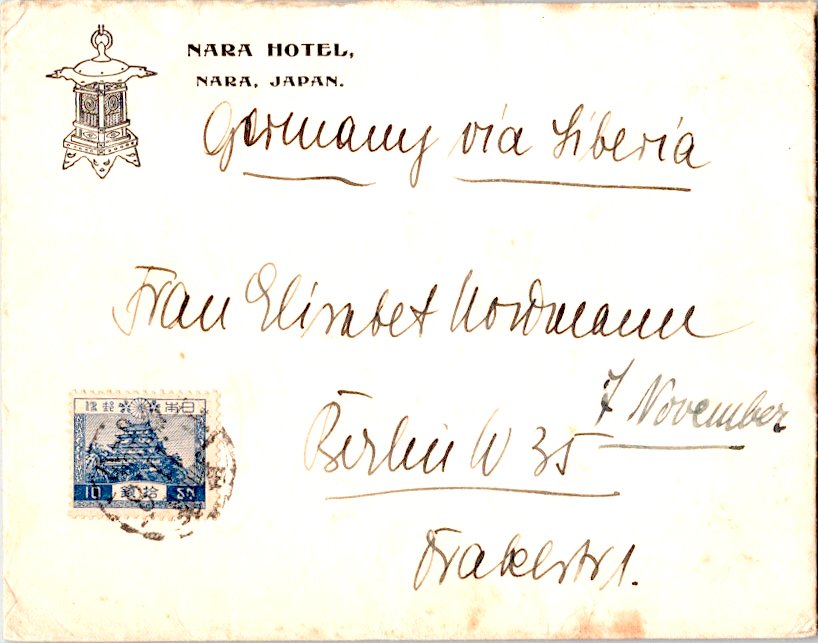 NARA HOTEL,
NARA, JAPAN.
Germany via Siberia
Frau Elisabet Nordmann
7 November
Berlin W 35
Drakestr 1.
日本郵便
10 拾銭 SN